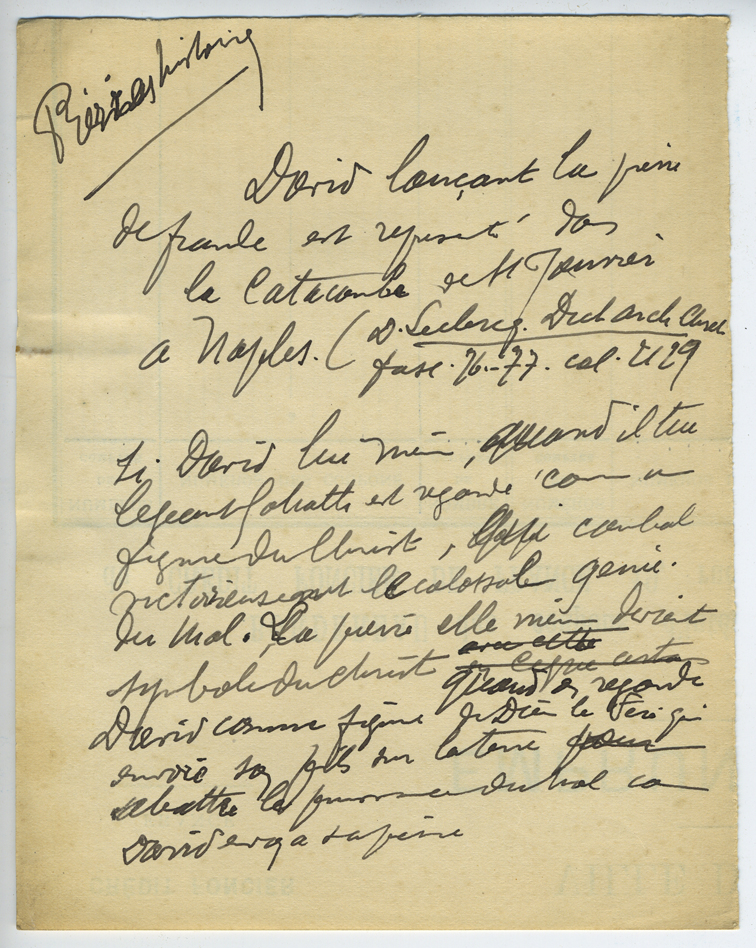 Pierres histoire
David lançant la pierre
de fronde est représenté dans
la Catacombe de St Janvier
a Naples. (D. Leclercq. Dict arch Chret
fasc. 76-77. col. 2129
Si David lui même, quand il tue
le géant Goliath est regardé comme un
figure du Christ, qui combat
victorieusement le colossale génie
du Mal. La pierre elle même devient
symbole du Christ avec cette
quand on regarde
David comme figure de Dieu le Père qui
envoie son fils sur la terre pour
abattre la puissance du mal com
David envoya sa pierre